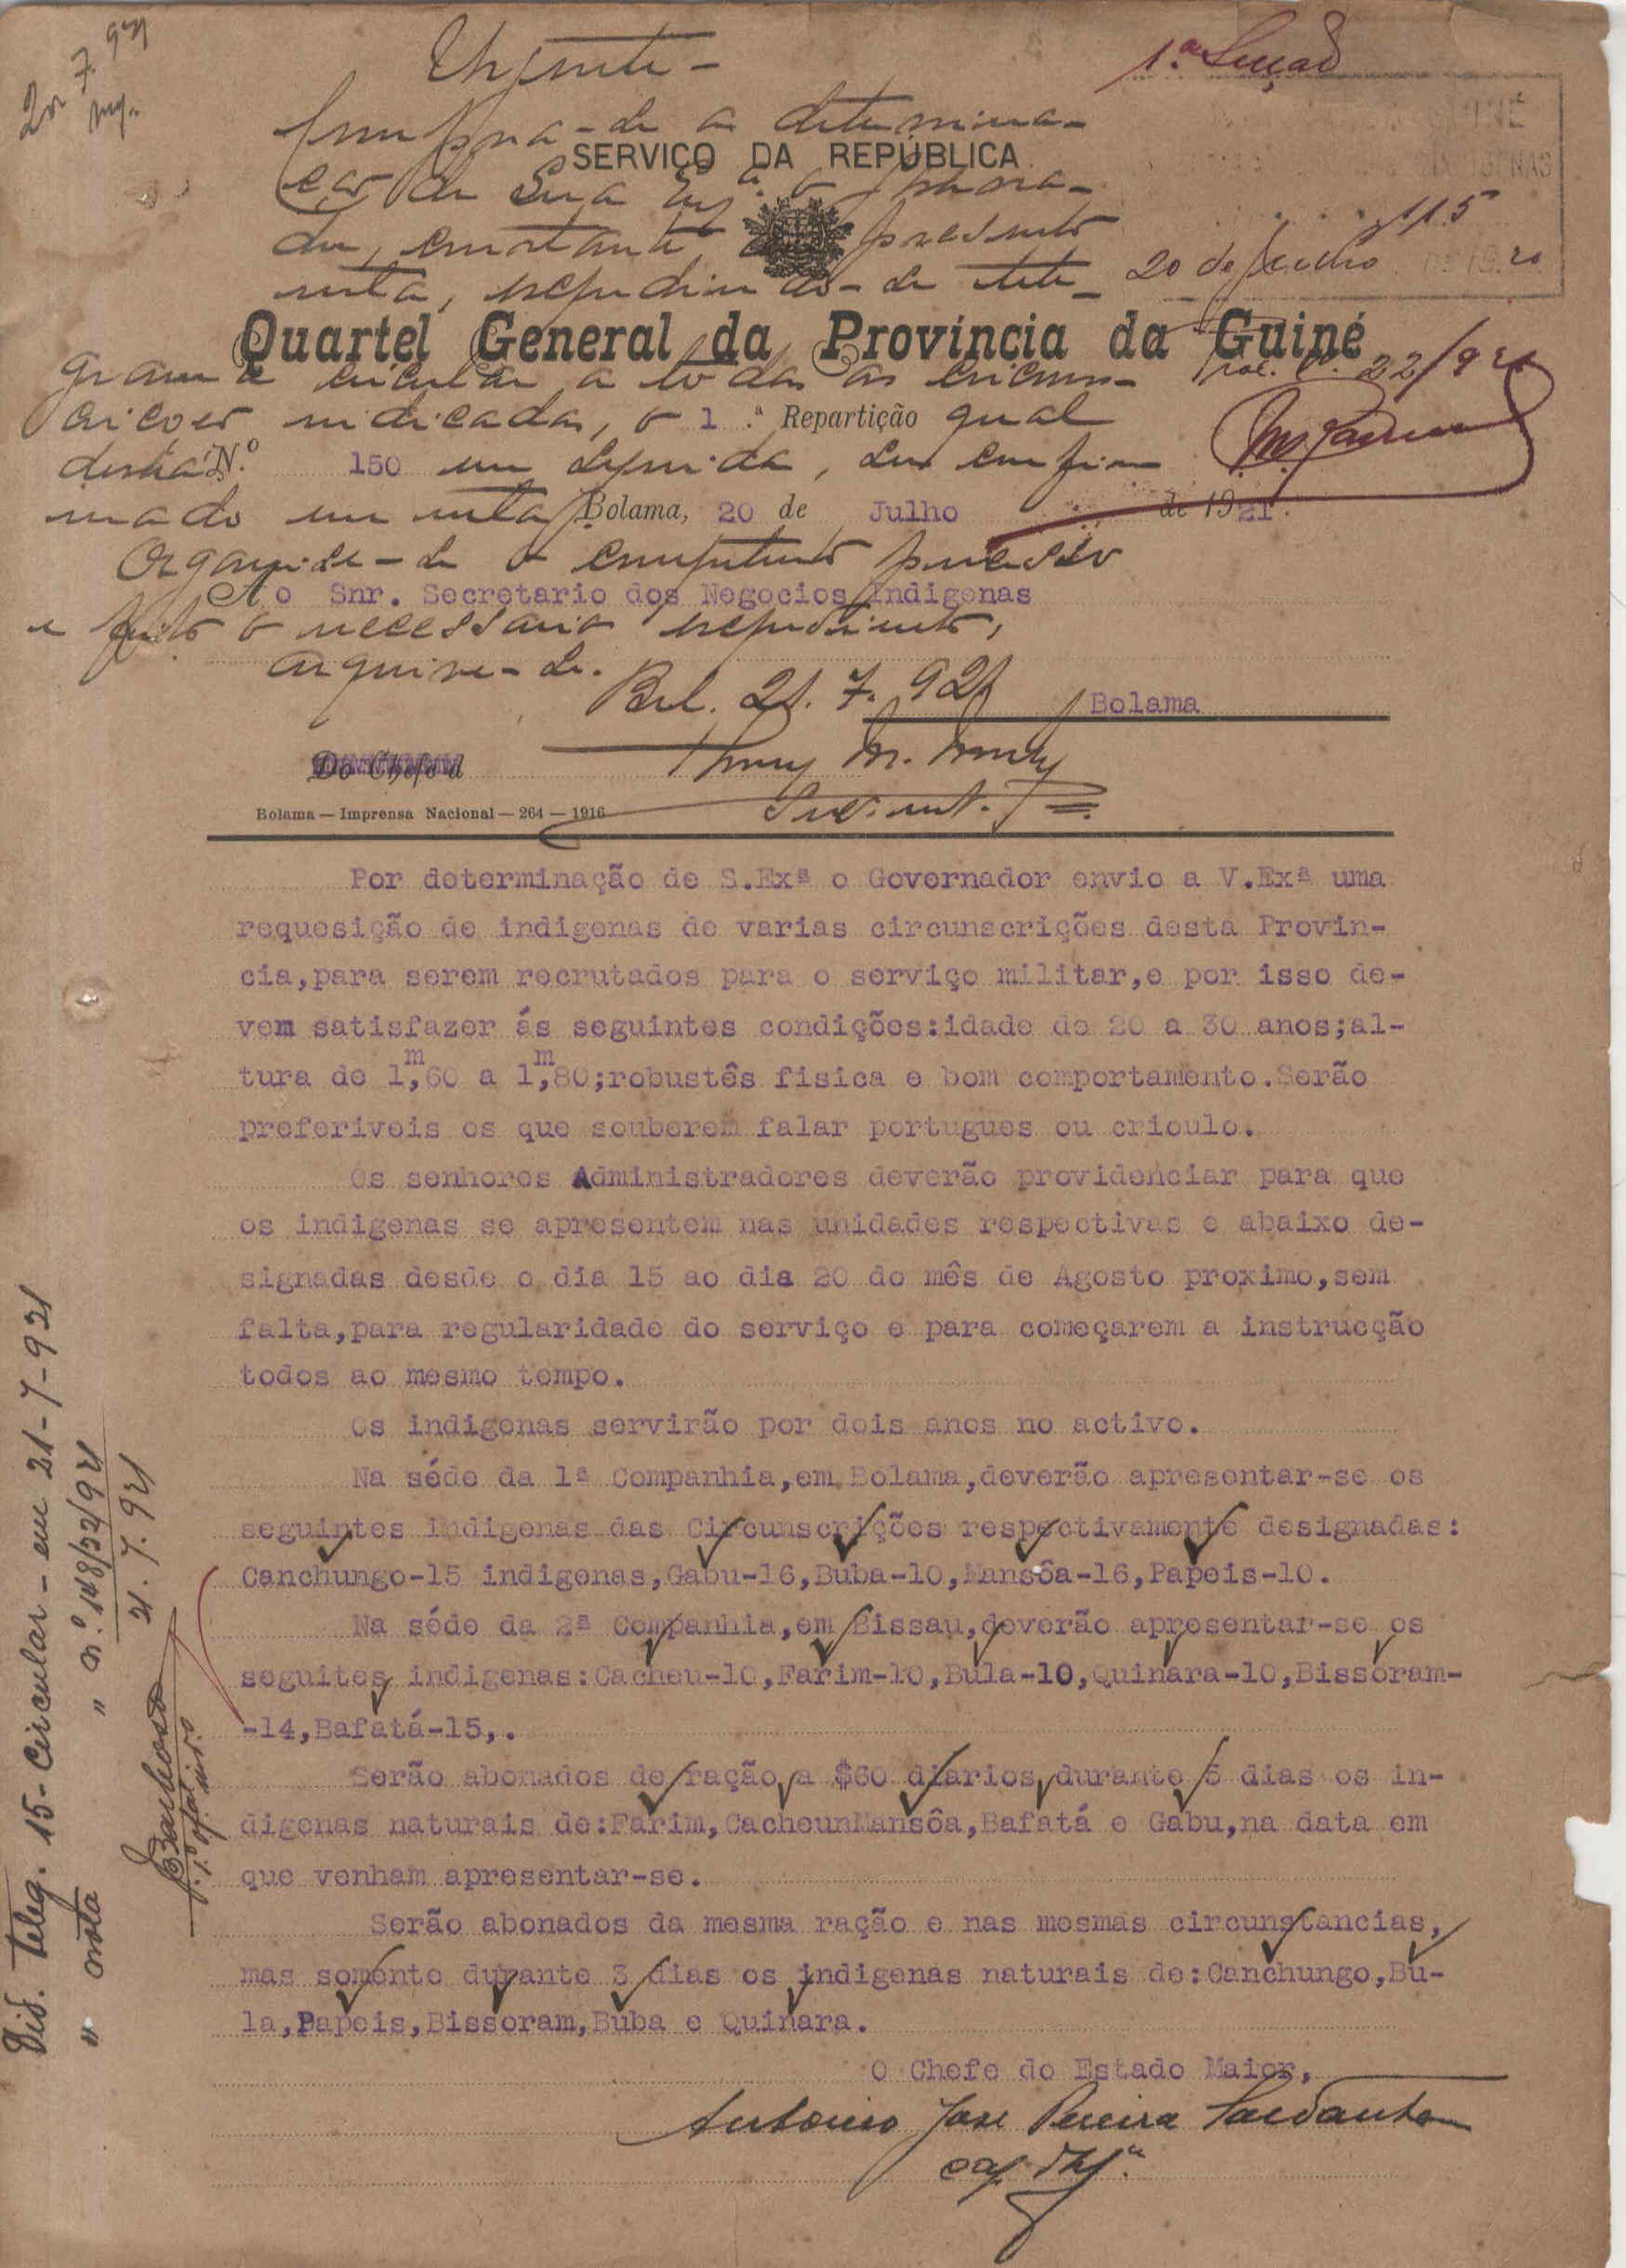 Urgente -
1.ª Secção
20 7. 921
Cumpra-se a determina-
SERVIÇO DA REPÚBLICA
GUINÉ
ção de Sua Exª. o Governa-
INDIGENAS
dor, constante da presente
115
nota, expedindo-se tele-
20 de Julho de 1920
Quartel General da Província da Guiné
grama circular a todas as circuns-
22/921
crições indicadas, o 1.ª Repartição qual
deverá N.º 150 em seguida, ser confir-
mado em nota. Bolama, 20 de Julho de 1921.
Organise-se o competente processo
Ao Snr. Secretario dos Negocios Indigenas
e feito o necessario expediente,
arquive-se.
Bol. 21. 7. 921
Bolama
Do Chefe d
Bolama — Imprensa Nacional — 264 — 1916
Por determinação de S.Exª o Governador envio a V.Exª uma
requesição de indigenas de varias circunscrições desta Provin-
cia,para serem recrutados para o serviço militar,e por isso de-
vem satisfazer ás seguintes condições:idade de 20 a 30 anos;al-
tura de 1,m60 a 1,m80;robustês fisica e bom comportamento.Serão
preferiveis os que souberem falar portugues ou crioulo.
Os senhores Administradores deverão providenciar para que
os indigenas se apresentem nas unidades respectivas e abaixo de-
signadas desde o dia 15 ao dia 20 do mês de Agosto proximo,sem
falta,para regularidade do serviço e para começarem a instrucção
todos ao mesmo tempo.
Os indigenas servirão por dois anos no activo.
Na séde da 1ª Companhia,em Bolama,deverão apresentar-se os
seguintes indigenas das Circunscrições respectivamente designadas:
Canchungo-15 indigenas,Gabu-16,Buba-10,Mansôa-16,Papeis-10.
Na séde da 2ª Companhia,em Bissau,deverão apresentar-se os
seguites indigenas:Cacheu-10,Farim-10,Bula-10,Quinara-10,Bissoram-
-14,Bafatá-15,.
Serão abonados de ração,a $60 diarios,durante 5 dias os in-
digenas naturais de:Farim,CacheunMansôa,Bafatá e Gabu,na data em
que venham apresentar-se.
Serão abonados da mesma ração e nas mesmas circunstancias,
mas somente durante 3 dias os indigenas naturais de:Canchungo,Bu-
la,Papeis,Bissoram,Buba e Quinara.
O Chefe do Estado Maior,
Antonio José Pereira Saldanha
cap. Infª.
Teleg. 15-Circular-em 21-7-921
" nota " n.º 148/52/921
21. 7. 921
Barbosa
1.º ofal